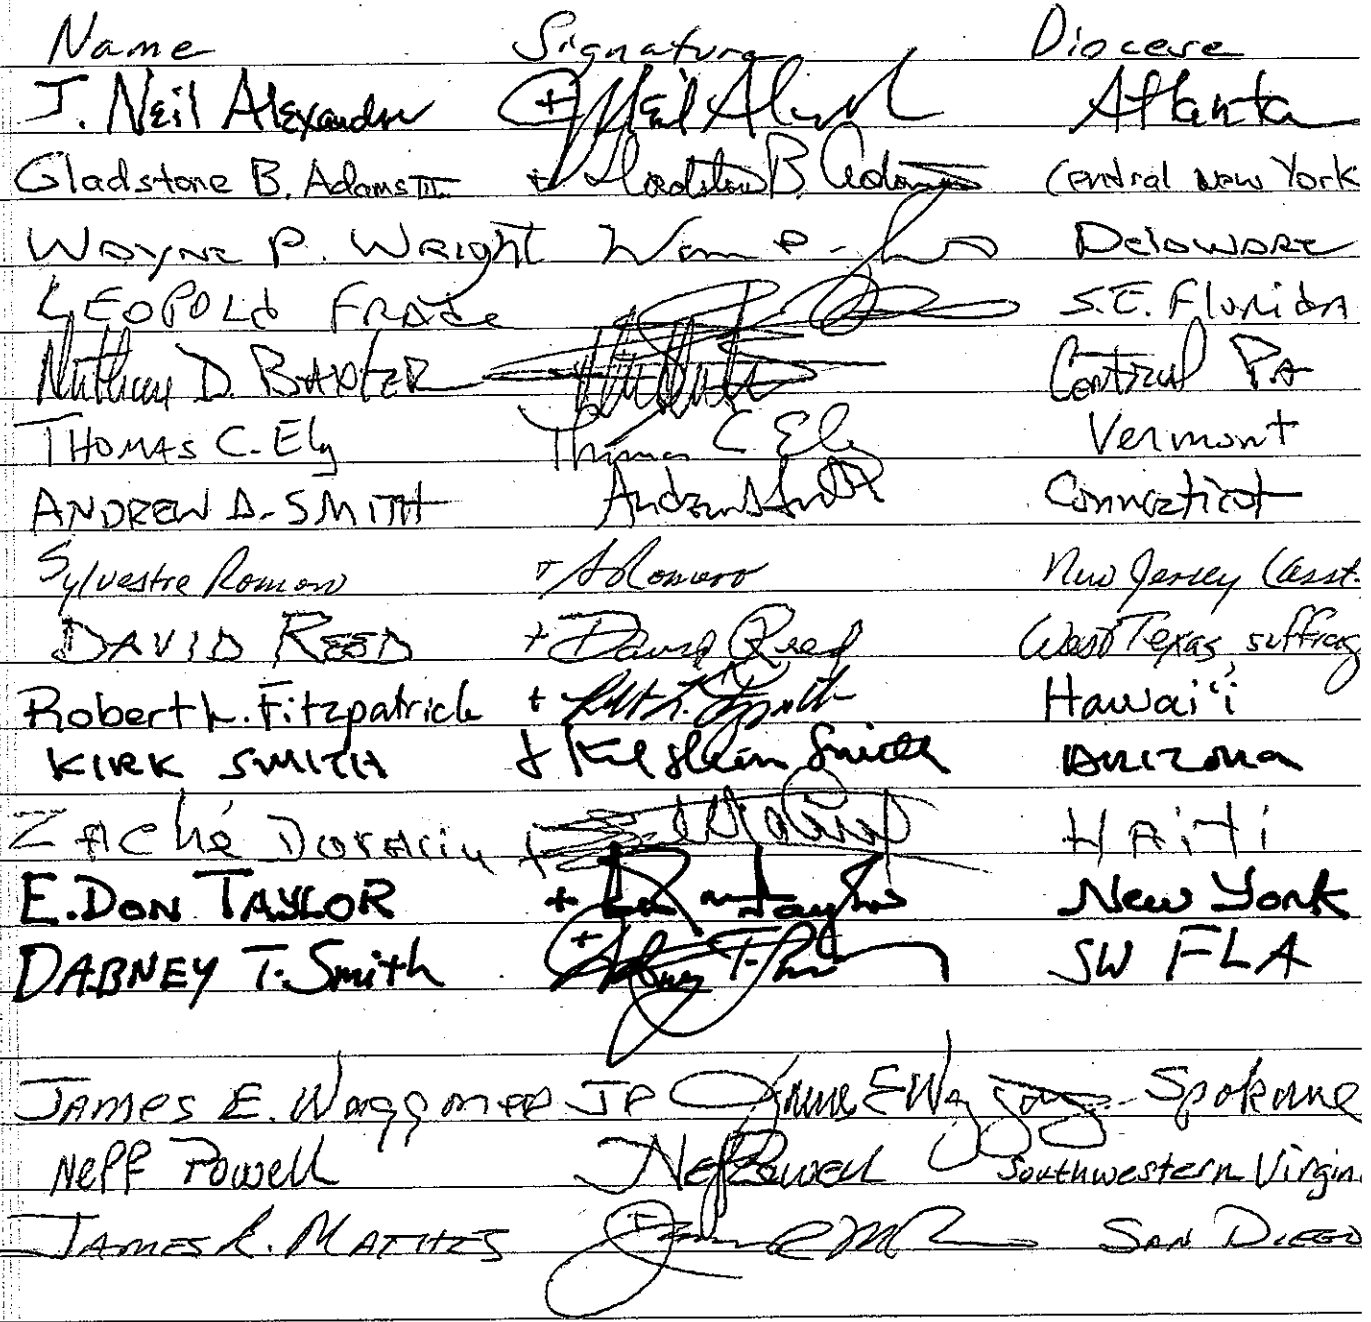 Name Signature Diocese
J. Neil Alexander +Neil Alexander Atlanta
Gladstone B. Adams III + Gladstone B. Adams Central New York
Wayne P. Wright Wayne P. Delaware
LEOPOLd FRAdE S.E. Florida
Nathan D. BAXTER Central PA
THOMAS C. Ely Thomas C Ely Vermont
ANDREW D. SMITH Andrew D Smith Connecticut
Sylvestre Romero + S Romero New Jersey (asst.
DAVID REED + David Reed West Texas, suffrag
Robert L. Fitzpatrick + Hawai'i
KIRK SMITH + Kirk Smith ARIZONA
ZAché Duracin + HAiti
E. DON TAYLOR + Don Taylor New York
DABNEY T. Smith + Dabney T. Smith SW FLA
JAMES E. Waggoner JR James E Waggoner Spokane
Neff Powell Neff Powell Southwestern Virgin
JAMES R. MATHES + SAN DIEGO